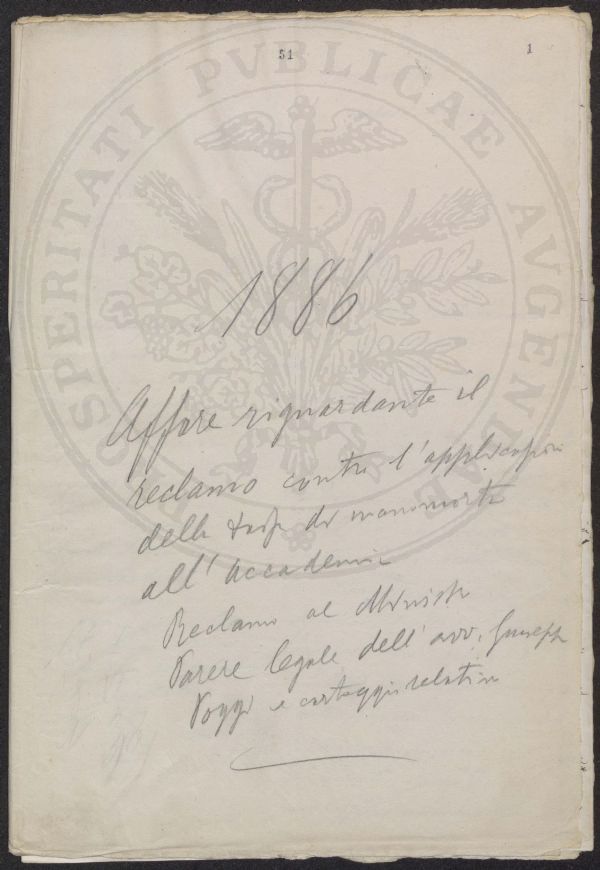 51
1
1886
Affare riguardante il
reclamo contro l'applicazione
della tassa di manomorta
all'Accademia
Reclamo al Ministro
Parere legale dell'avv. Giuseppe
Poggi e carteggio relativo
PROSPERITATI PVBLICAE AVGENDAE